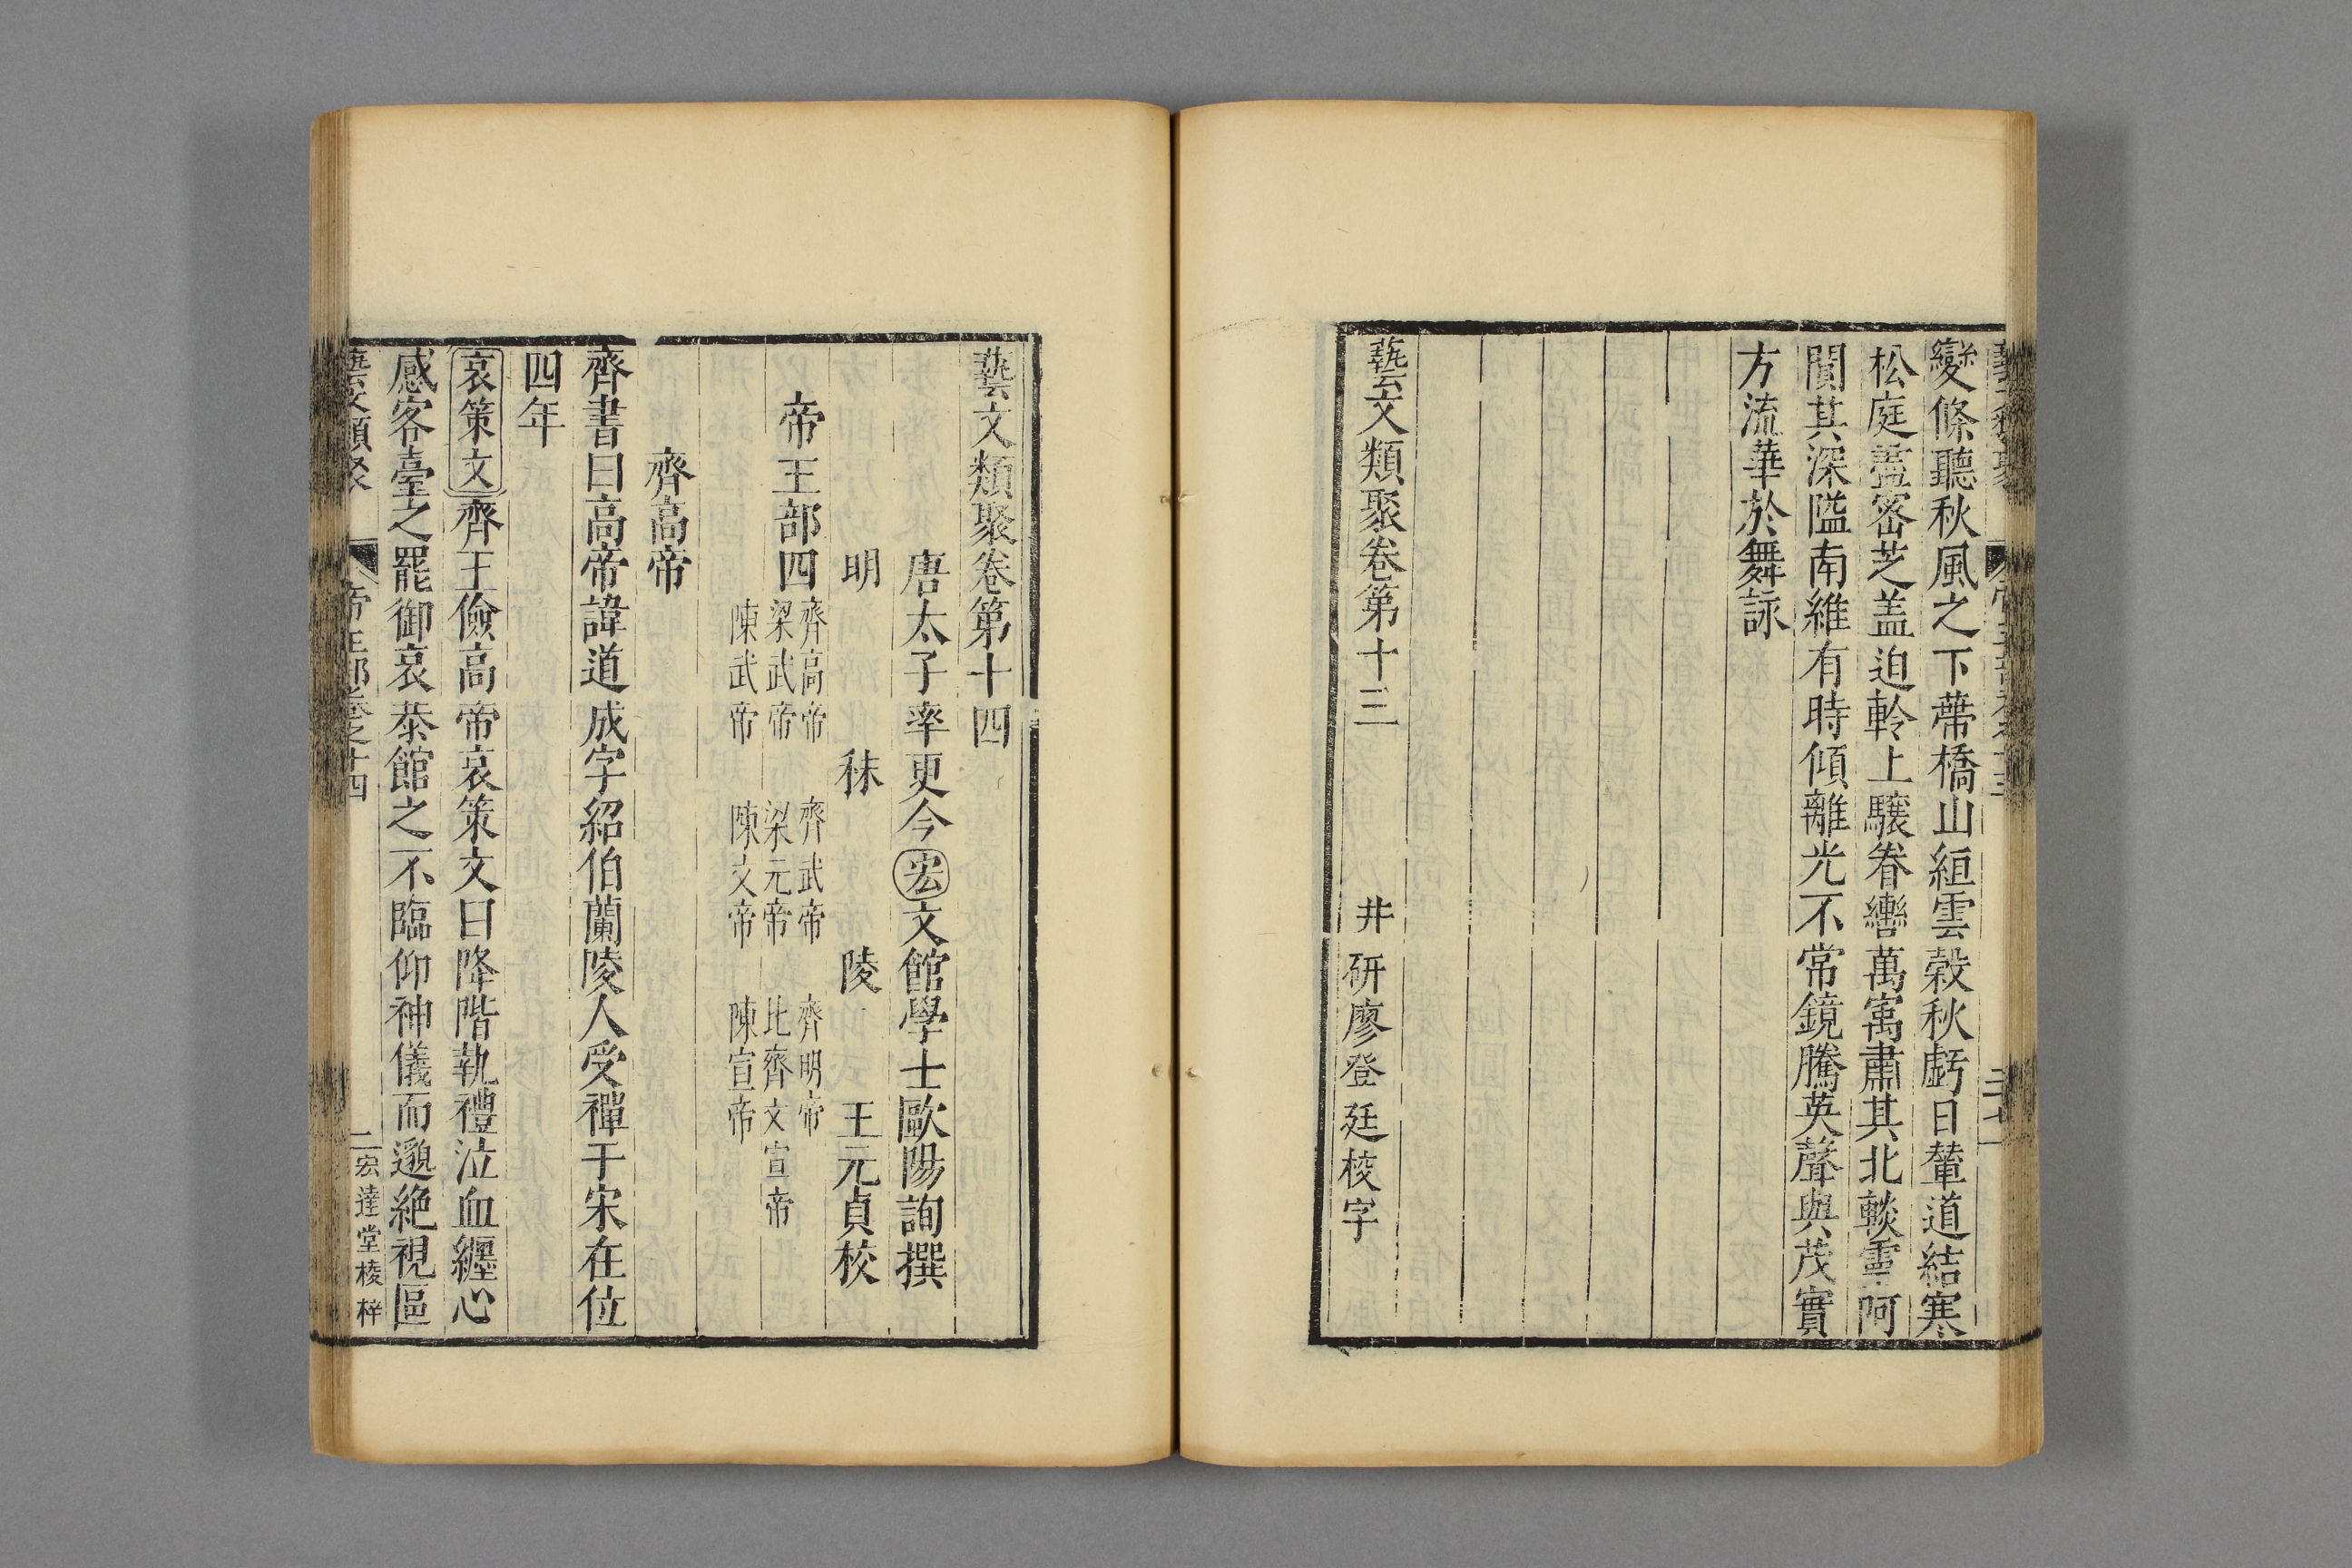 變條聽秋風之下蔕橋山絙雲穀秋虧日輦道結寒
松庭盡密芝盖迫軨上驤眷轡萬寓肅其北轂靈阿
閴其深隘南維有時傾離光不常鏡騰英聲與茂實
方流華於舞詠
藝文類聚卷第十三
井研廖登廷校字
藝文類聚卷第十四
唐太子率更令宏文館學士歐陽詢撰
明 秣 陵 王元貞校
帝王部四
齊高帝 齊武帝 齊明帝
梁武帝 梁元帝 北齊文宣帝
陳武帝 陳文帝 陳宣帝
齊高帝
齊書曰高帝諱道成字紹伯蘭陵人受禪于宋在位
四年
哀策文齊王儉高帝哀策文曰降階執禮泣血纒心
感客臺之罷御哀㳟館之不臨仰神儀而邈絶視區
藝文類聚 帝王部卷之十四 二 宏達堂棱梓